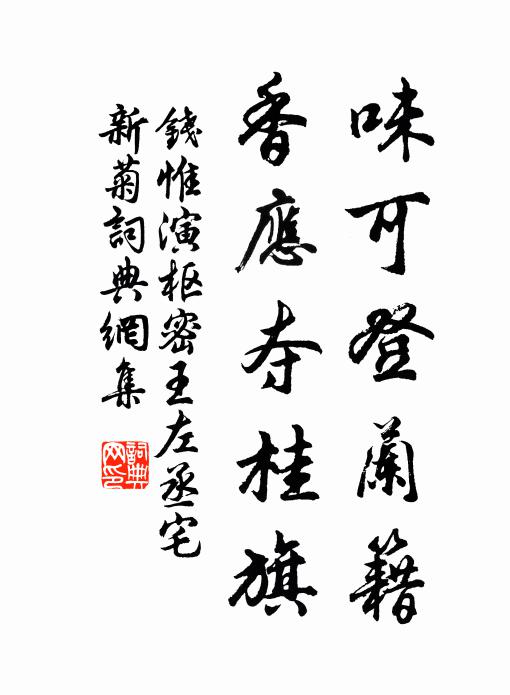 味可登蘭籍
香應夺桂旗
錢惟演枢密王左丞宅
新菊詞典網集
詞典
网印